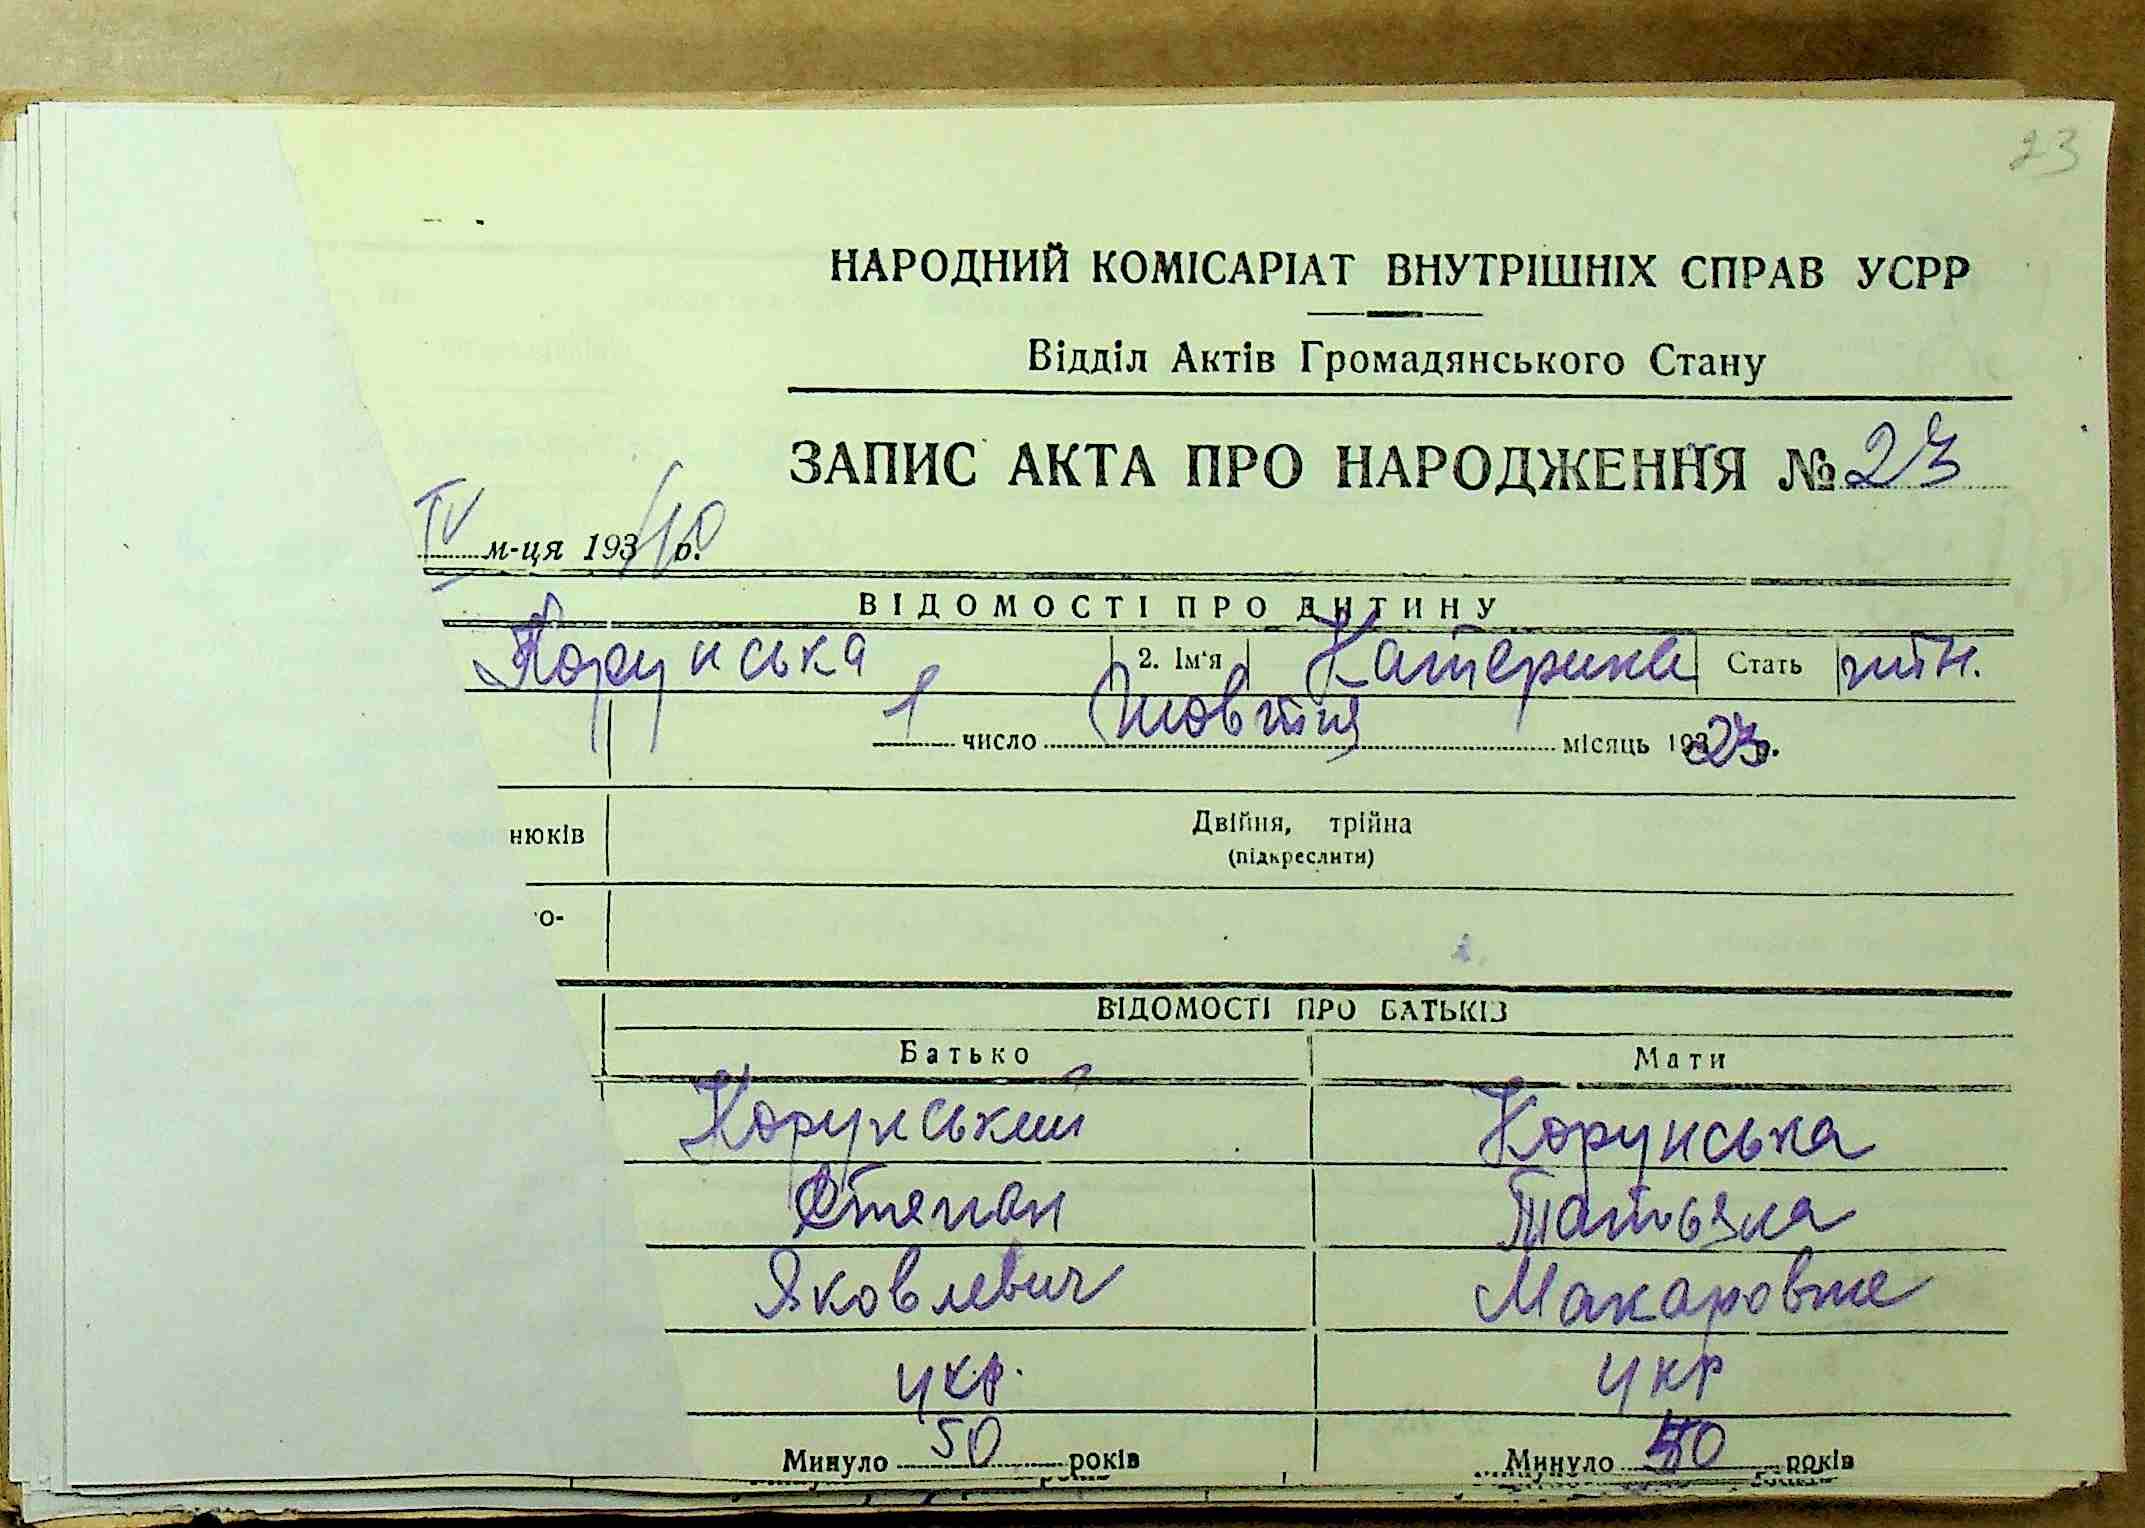 23
НАРОДНИЙ КОМІСАРІАТ ВНУТРІШНІХ СПРАВ УСРР
Відділ Актів Громадянського Стану
ЗАПИС АКТА ПРО НАРОДЖЕННЯ № 23
IV м-ця 193 40 р.
ВІДОМОСТІ ПРО ДИТИНУ
Корунська 2. Ім'я Катерина Стать жін.
1 число Жовтня місяць 1923 р.
нюків Двійня, трійна
(підкреслити)
о-
ВІДОМОСТІ ПРО БАТЬКІВ
Батько Мати
Корунський Корунська
Степан Татьяна
Яковлевич Макаровна
укр. укр
Минуло 50 років Минуло 50 років